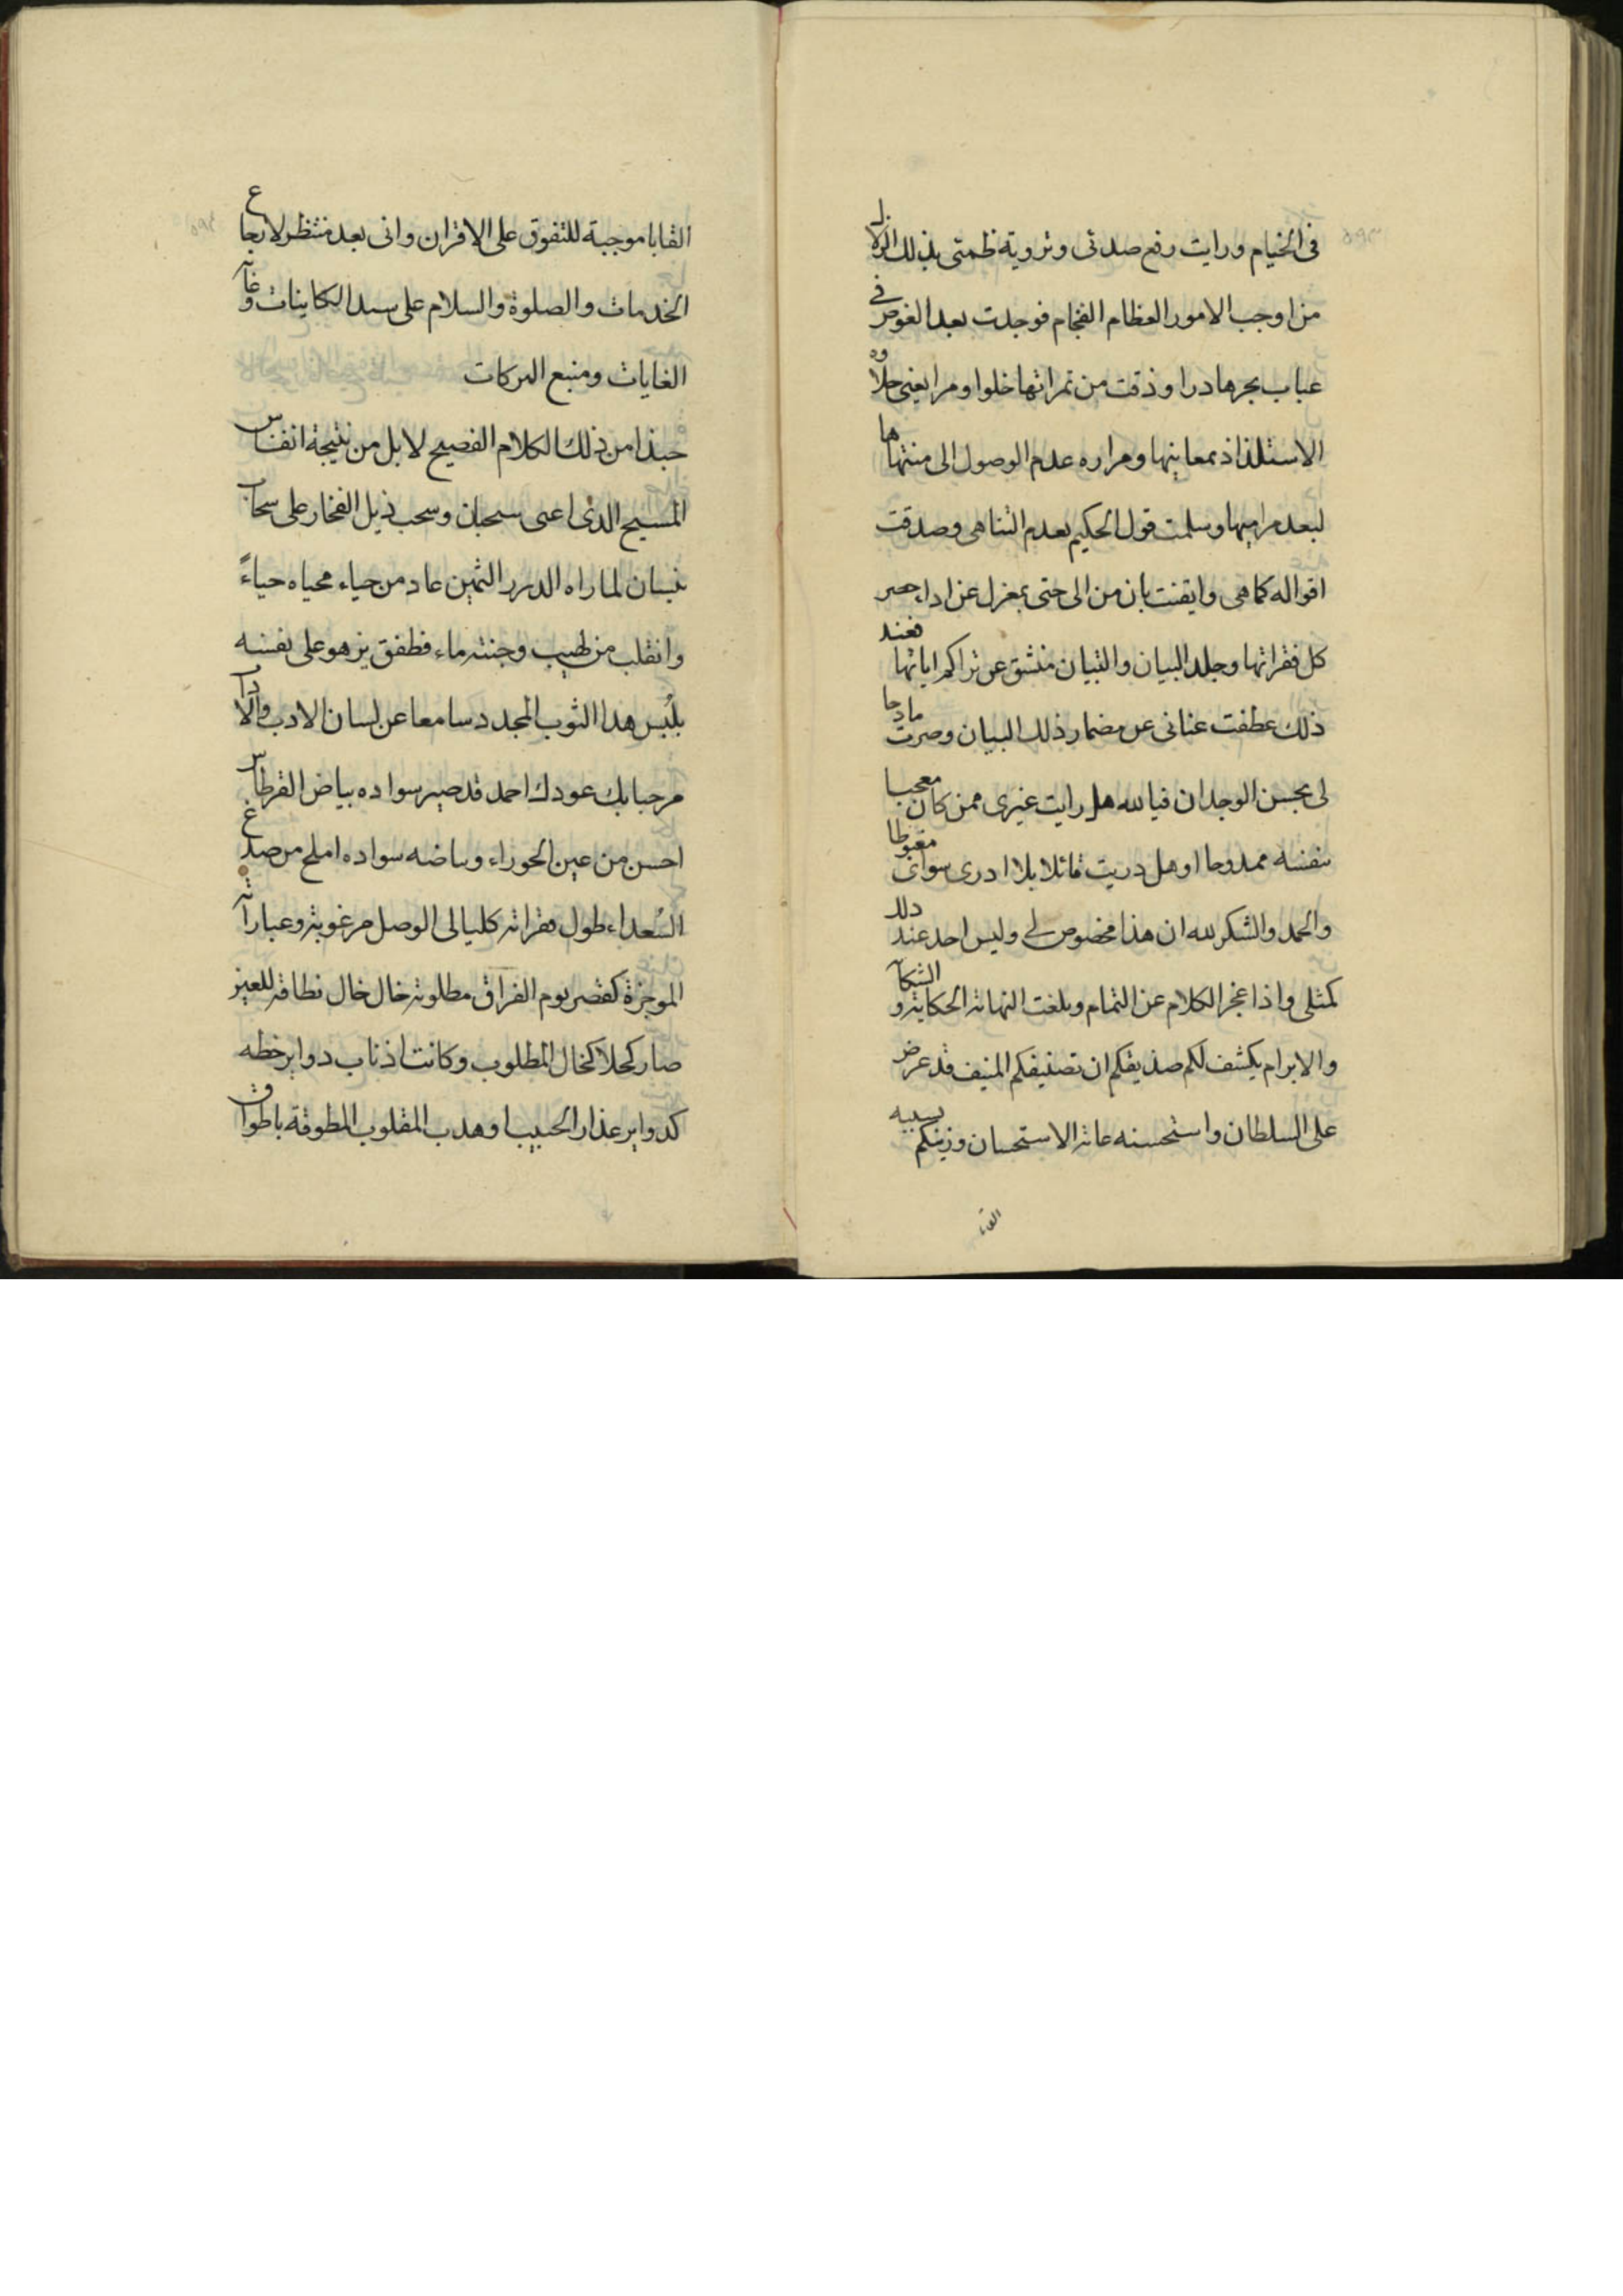 فى الخيام ورايت رفع صدئى وتروية ظمئى بذلك الزلال
من اوجب الامور العظام الفخام فوجدت بعد الغوص فى
عباب بحرها درا وذقت من ثمراتها خلوا ومرا يعنى حلاوه
الاستلذاذ بمعاينها ومراره عدم الوصول الى منتهاها
لبعد مراميها وسلمت قول الحكيم بعدم التناهى وصدقت
اقواله كماهى وايقنت بان من الى حتى بمعزل عن اداء حصر
كل فقراتها وجلد البيان والتبيان منشق عن تراكم اياتها فعند
ذلك عطفت عنانى عن مضمار ذلك البيان وصرت مادحا
لى بحسن الوجدان فيا لله هل رايت غيرى ممن كان معجبا
بنفسه ممدوحا او هل دريت قائلا بلا ادرى سواى مغبوطا
والحمد والشكر لله ان هذا مخصوص لى وليس احد عند ذلك
كمثلى واذا عجز الكلام عن التمام وبلغت النهاية الحكاية و الشكاية
والابرام يكشف لكم صديقكم ان تصنيفكم المنيف قد عرض
على السلطان واستحسنه غاية الاستحسان وزينكم بسببه
القا
القابا موجبة للتفوق على الاقران وانى بعد منتظر لارجاع
الخدمات والصلوة والسلام على سيد الكاينات وغاية
الغايات ومنبع البركات
حبذا من ذلك الكلام الفصيح لا بل من نتيجة انفاس
المسيح الذى اعيى سحبان وسحب ذيل الفخار على سحاب
نيسان لما راه الدرر الثمين عاد من حياء محياه حياءً
وانقلب من لهيب وجنته ماء فطفق يزهو على نفسه
بلبس هذا الثوب المجدد سامعا عن لسان الادب والاداب
مرحبا بك عودك احمد قد صير سواده بياض القرطاس
احسن من عين الحوراء وبياضه سواده املح من صدغ
السعداء طول فقراته كليالى الوصل مرغوبة وعباراته
الموجزة كقصر يوم الفراق مطلوبة خال خال نطاقه للعين
صار كحلا كخال المطلوب وكانت اذناب دواير خطه
كدواير عذار الحبيب او هدب المقلوب المطوقة باطواق